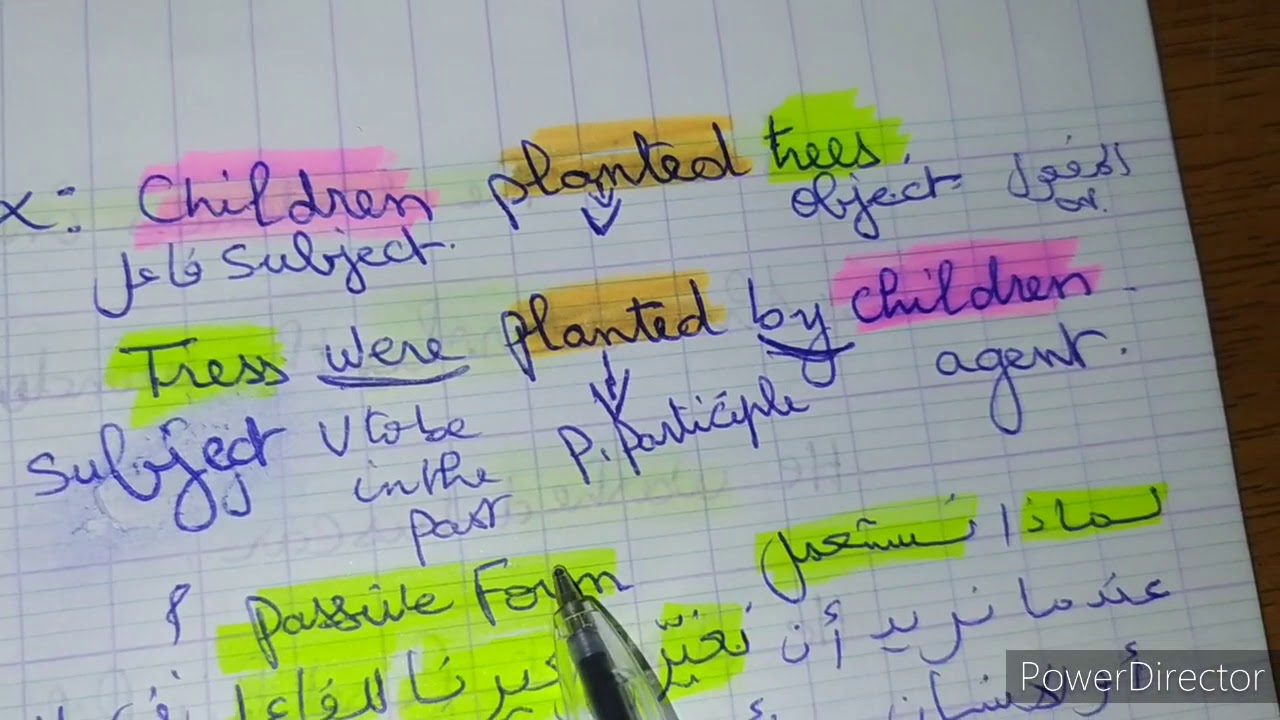 x: Children planted trees.
فاعل Subject. object = المفعول
Tress were planted by children.
Subject V to be in the past P. participle agent.
لماذا نستعمل Passive Form ؟
عندما نريد أن نغير
PowerDirector